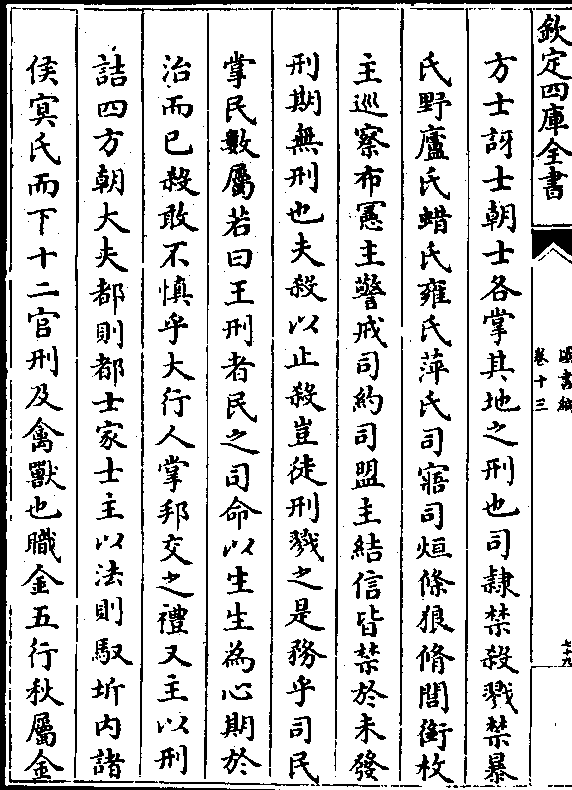 欽定四庫全書
圖書編
卷十三
七十九
方士訝士朝士各掌其地之刑也司隸禁殺戮禁暴
氏野廬氏蜡氏雍氏萍氏司寤司烜條狼脩閭銜枚
主巡察布憲主警戒司約司盟主結信皆禁於未發
刑期無刑也夫殺以止殺豈徒刑戮之是務乎司民
掌民數屬若曰王刑者民之司命以生生為心期於
治而已殺敢不慎乎大行人掌邦交之禮又主以刑
詰四方朝大夫都則都士家士主以法則馭圻內諸
侯㝠氏而下十二官刑及禽獸也職金五行秋屬金